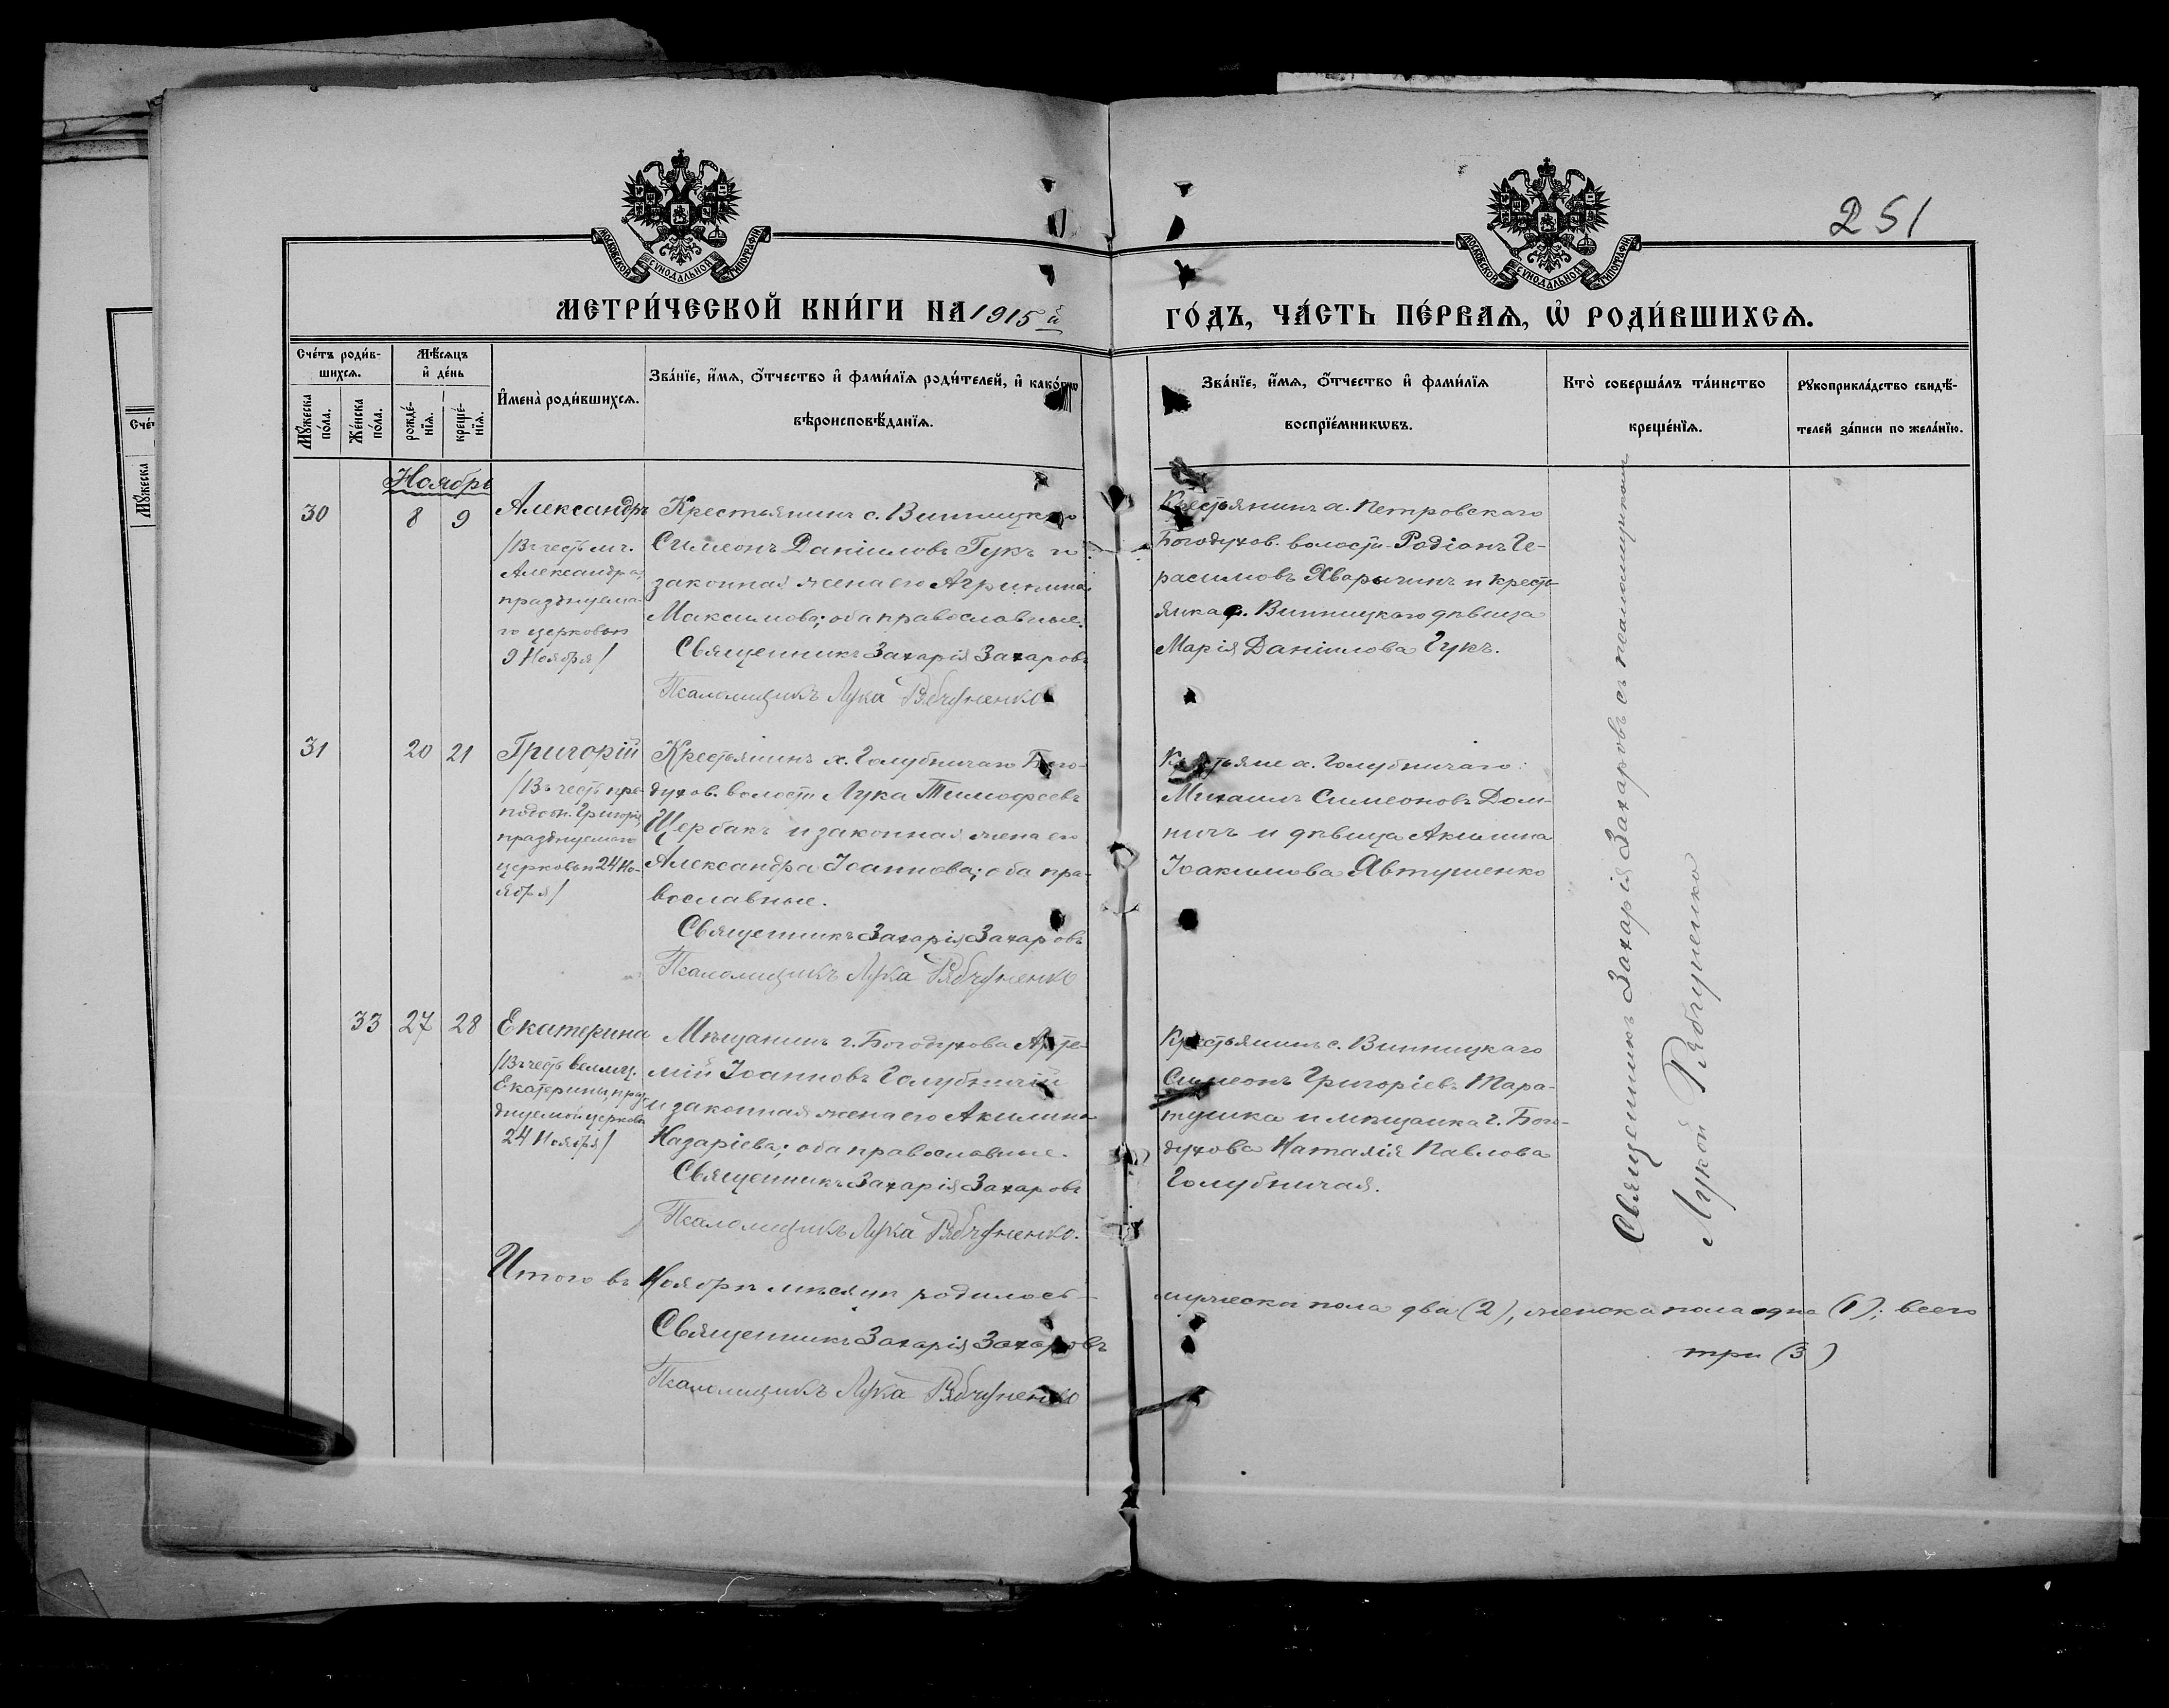 251
МОСКОВСКОЙ СѴНОДАЛЬНОЙ ТИПОГРАФІИ
МОСКОВСКОЙ СѴНОДАЛЬНОЙ ТИПОГРАФІИ
МЕТРИ́ЧЕСКОЙ КНИ́ГИ НА 1915й
ГО́ДЪ, ЧА́СТЬ ПЕ́РВАѦ, Ѽ РОДИ́ВШИХСѦ.
Сче́тъ роди́в-
шихсѧ.
Мѣ́сѧцъ
и҆ де́нь
Мꙋ́жеска
по́ла.
Же́нска
по́ла.
рожде́-
нїѧ.
креще́-
нїѧ.
И҆мена̀ роди́вшихсѧ.
Зва́нїе, и҆́мѧ, ѻ҆́тчество и҆ фами́лїѧ роди́телей, и҆ како́гѡ
вѣроисповѣ́данїѧ.
Зва́нїе, и҆́мѧ, ѻ҆́тчество и҆ фами́лїѧ
воспрїе́мникѡвъ.
Кто̀ соверша́лъ та́инство
креще́нїѧ.
Рꙋкоприкла́дство свидѣ́-
телей за́писи по жела́нїю.
Ноябрь
30
8
9
Александръ
/Въ честь мч.
Александра,
празднуема-
го церковью
9 Ноября/
Крестьянинъ с. Винницкаго
Симеонъ Даніиловъ Гукъ и
законная жена его Агрипина
Максимова; оба православные.
Священникъ Захарія Захаровъ
Псаломщикъ Лука Рябчуненко
Крестьянинъ х. Петровскаго
Богодухов. волости Родіонъ Ге-
расимовъ Хваричинъ и кресть-
янка с. Винницкаго дѣвица
Марія Даніилова Гукъ.
31
20
21
Григорій
/Въ честь пре-
подобн. Григорія,
празднуемаго
церковью 24 Но-
ября/
Крестьянинъ х. Голубничаго Бого-
духов. волости Лука Тимофеевъ
Щербакъ и законная жена его
Александра Іоаннова; оба пра-
вославные.
Священникъ Захарія Захаровъ
Псаломщикъ Лука Рябчуненко
Крестьяне х. Голубничаго:
Михаилъ Симеоновъ Дом-
ничъ и дѣвица Акилина
Іоакимова Явтушенко
33
27
28
Екатерина
/Въ честь великмч.
Екатерины, праз-
днуемой церковью
24 Ноября/
Мѣщанинъ г. Богодухова Арте-
мій Іоанновъ Голубничій
и законная жена его Акилина
Назаріева; оба православные.
Священникъ Захарія Захаровъ
Псаломщикъ Лука Рябчуненко.
Крестьянинъ с. Винницкаго
Симеонъ Григоріевъ Тара-
тушка и мѣщанка г. Бого-
духова Наталія Павлова
Голубничая.
Священникъ Захарія Захаровъ съ псаломщикомъ
Лукой Рябчуненко
Итого въ Ноябрѣ мѣсяцѣ родилось
мужеска пола два (2), женска пола одна (1); всего
три (3)
Священникъ Захарія Захаровъ
Псаломщикъ Лука Рябчуненко
Мꙋ́жеска